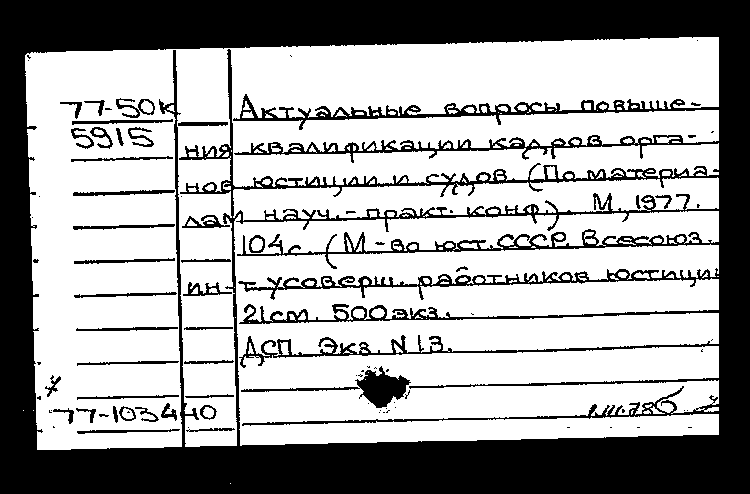 77-50к Актуальные вопросы повыше-
5915 ния квалификации кадров орга-
нов юстиции и судов. (По материа-
лам науч.-практ. конф.). М., 1977.
104с. (М-во юст. СССР. Всесоюз.
ин-т усоверш. работников юстиции
21см. 500экз.
ДСП. Экз. N13.
77-103440 1.III.78